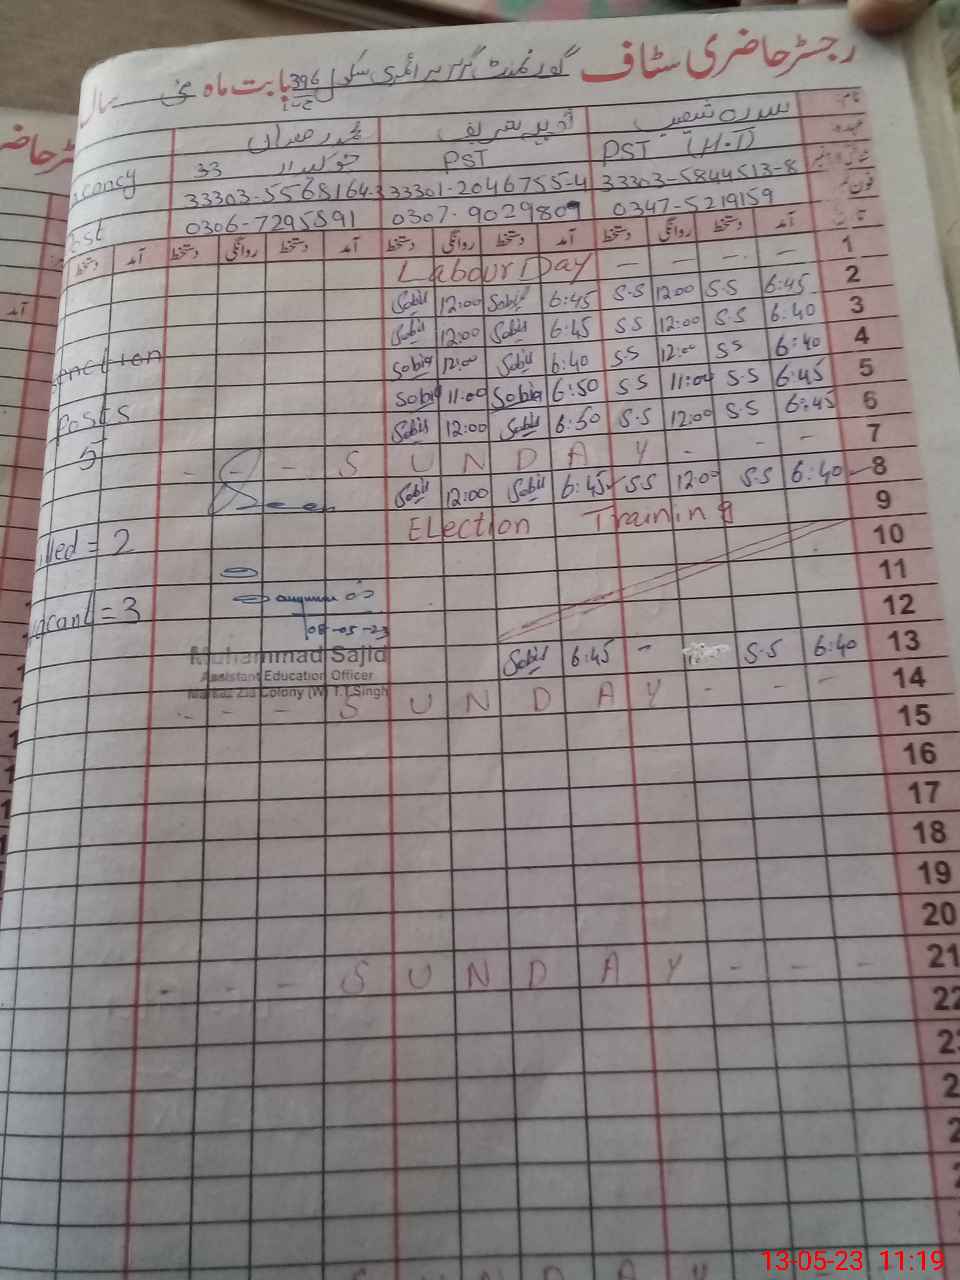 رجسٹر حاضری سٹاف گورنمنٹ گرلز پرائمری سکول 396 ج ب بابت ماہ مئی سال
نام
سدرہ شعیب
PST (H.T) PST 33
33303-5844513-8 33301-2046755-4 33303-5568164-3
فون نمبر 0347-5219159 0307-9029809 0306-7295591
آمد دستخط روانگی دستخط آمد دستخط روانگی دستخط آمد دستخط روانگی دستخط آمد دستخط
1 Labour Day - - - -
2 6:45 S.S 12:00 S.S 6:45 Sobia 12:00 Sobia
3 6:40 S.S 12:00 S.S 6:45 Sobia 12:00 Sobia
4 6:40 S.S 12:00 S.S 6:40 Sobia 12:00 Sobia
5 6:45 S.S 11:00 S.S 6:50 Sobia 11:00 Sobia
6 6:45 S.S 12:00 S.S 6:50 Sobia 12:00 Sobia
7 - - - S U N D A Y - - -
8 6:40 S.S 12:00 S.S 6:45 Sobia 12:00 Sobia
9 Election Training
10
11
12
13 6:40 S.S - 6:45 Sobia
14 - - - S U N D A Y - - -
15
16
17
18
19
20
21 - - - S U N D A Y - - - -
22
Posts
5
= 2
= 3
08-05-23
Muhammad Sajid
Assistant Education Officer
Markaz Zia Colony (W) T.T.Singh
حاضر
آمد
13-05-23 11:19